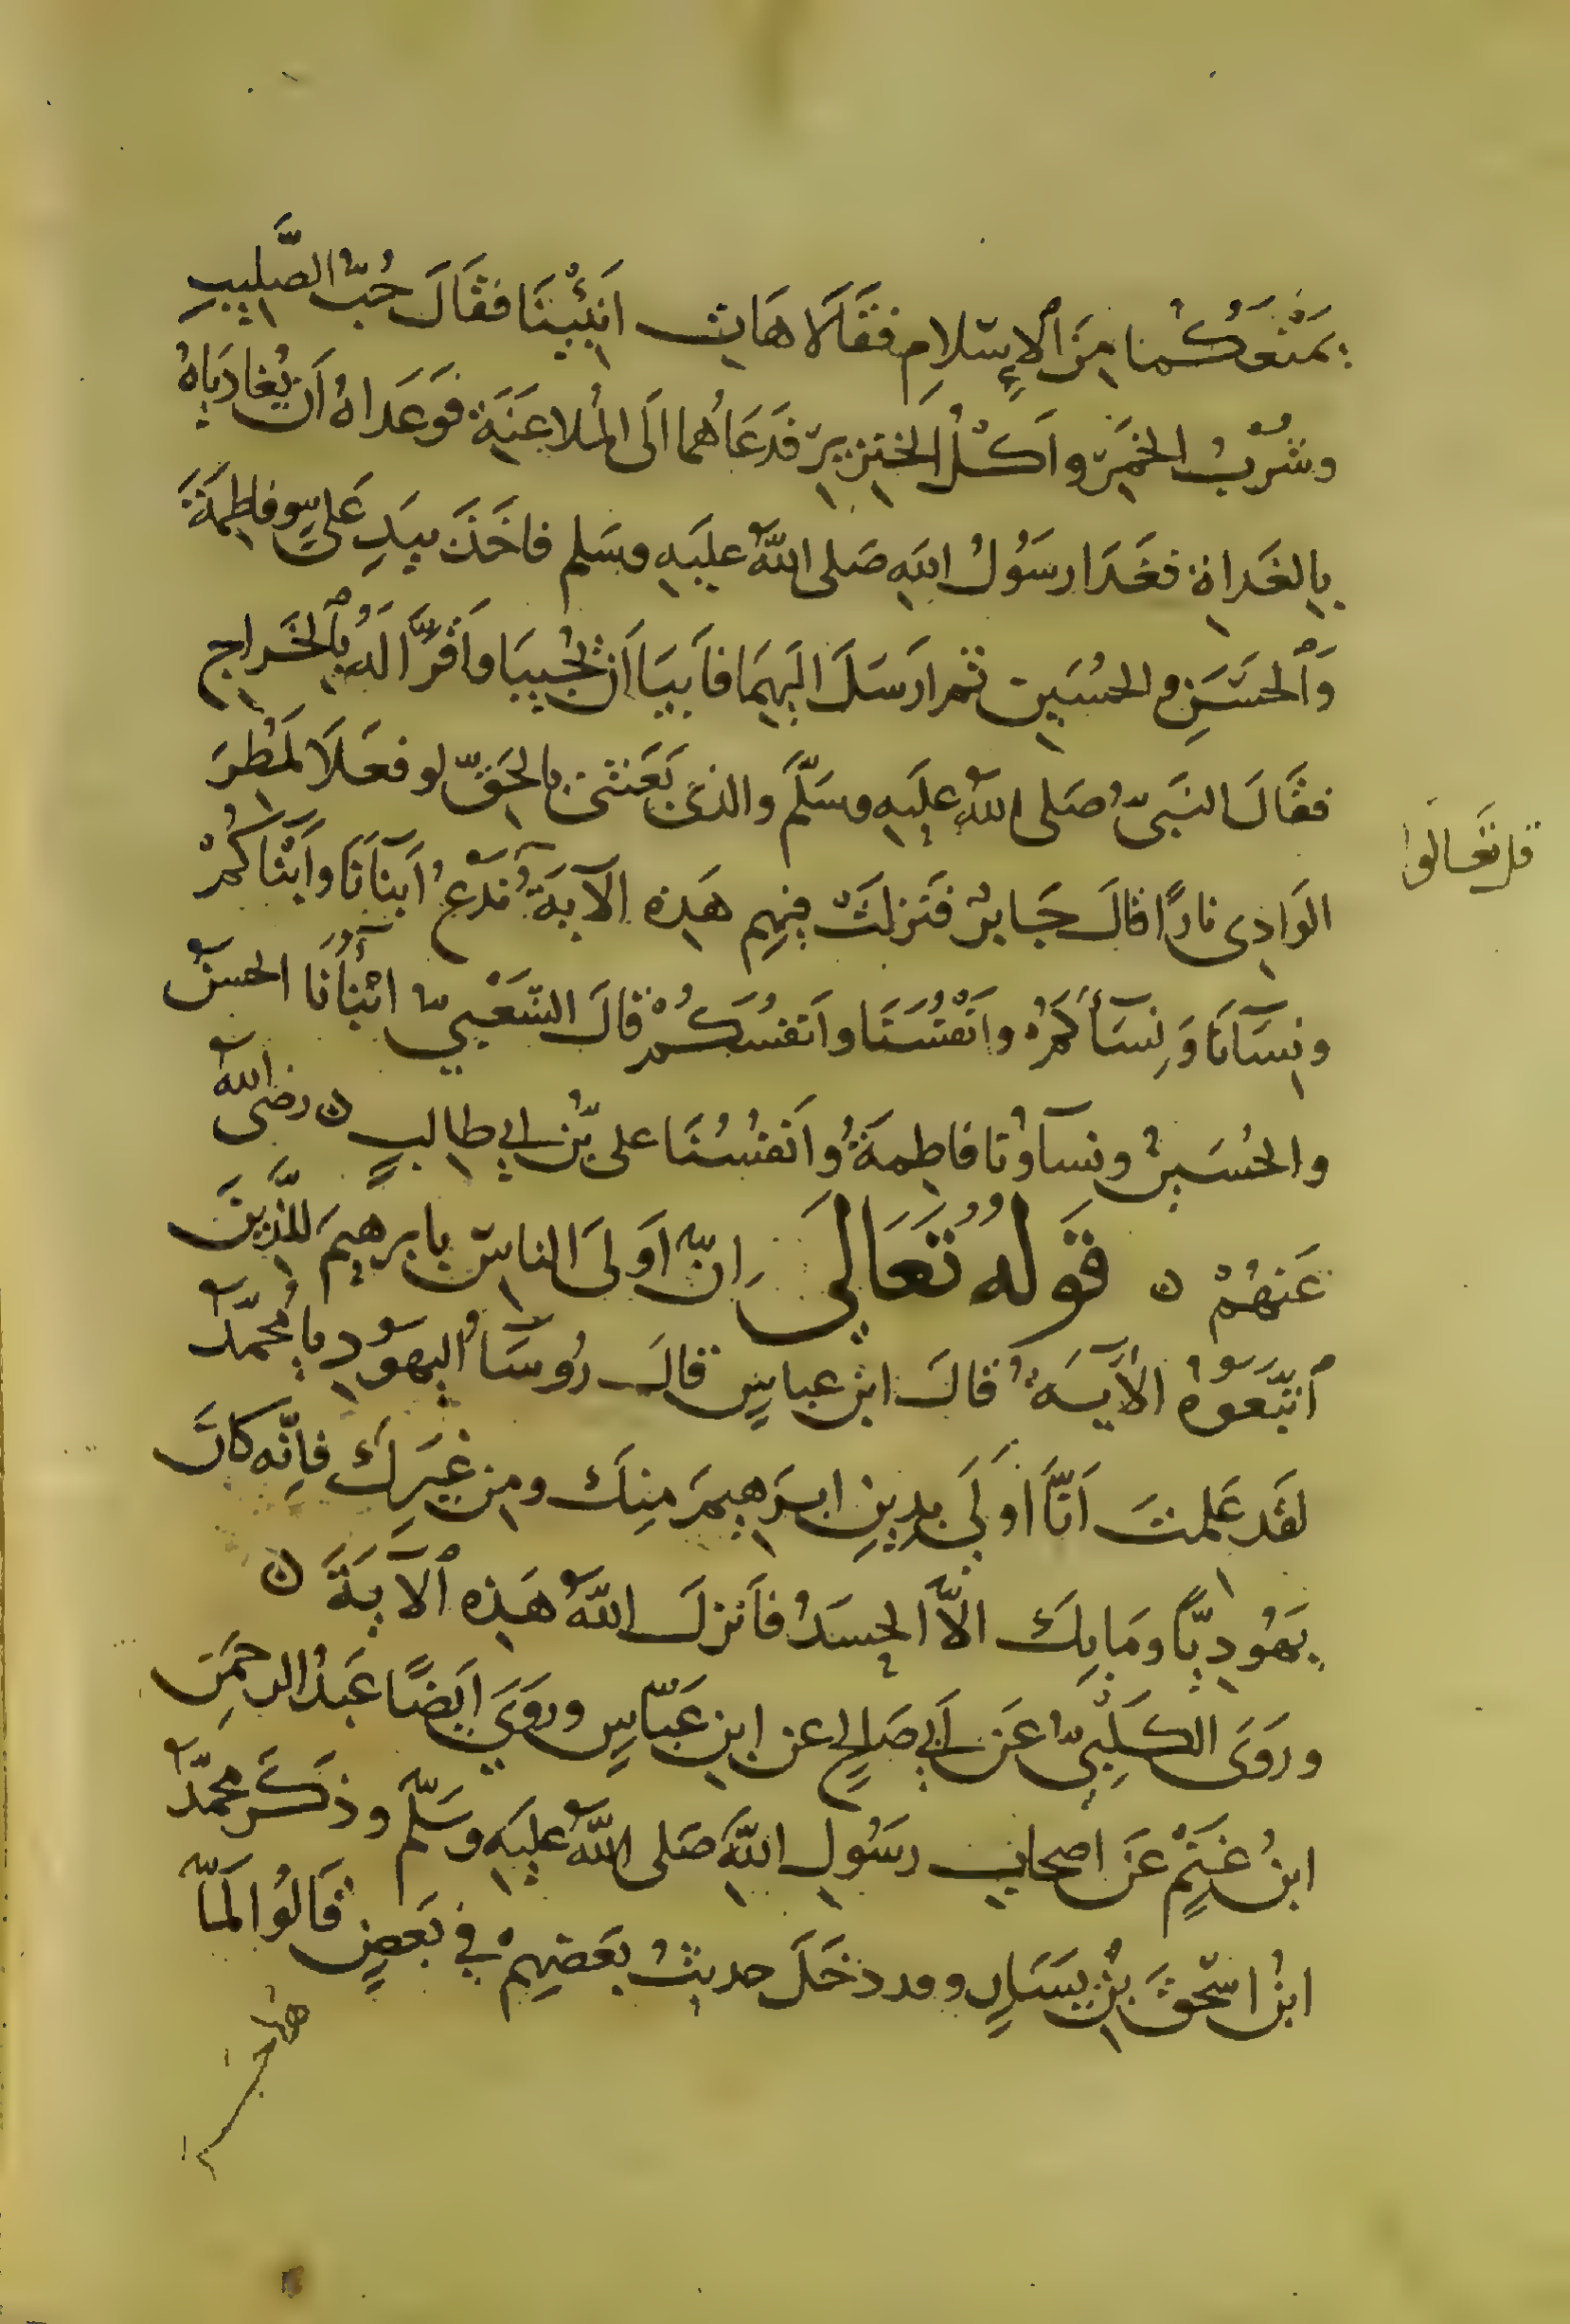 يَمْنَعُكُمَا مِنَ ٱلْإِسْلَامِ فَقَالَا هَاتِ أَنْبِئْنَا فَقَالَ حُبُّ الصَّلِيبِ
وشُرْبُ الخَمْرِ وأَكْلُ الخِنْزِيرِ فَدَعَاهُمَا الَى المُلاعَنَةِ فَوَعَدَاهُ أَنْ يُغَادِيَاهُ
بِالغَدَاةِ فَغَدَا رسُولُ اللهِ صَلى اللهُ عليَهِ وسَلم فاخَذَ بِيَدِ عَليٍّ وفاطِمَةَ
وَٱلحَسَنِ والحُسَينِ ثم ارسَلَ الَيهِمَا فأبَيَا أَنْ يُجِيبَا وأَقَرَّا لَهُ بِٱلخَراجِ
فقَالَ النَبيُّ صَلى اللهُ عليَهِ وسَلَّمَ والذى بَعَثنى بالحَقِّ لو فعَلَا لَمُطِرَ
الوَادِى نارًا قالَ جَابِرٌ فنَزلَتْ فِيهِم هَذِه الآيَةُ نَدْعُ أَبنآنَا وأَبْنَآكُمْ
ونِسَآنَا وَنِسَآكُمْ وأنْفُسَنَا وأنفُسَكُمْ قَالَ الشَعْبيُّ ابْنَآؤُنَا الحسنُ
والحُسَينُ ونِسَآؤُنا فاطِمَةُ وأنفُسُنَا على بنُ ابي طالِبٍ ۵ رضى الله
عَنهُمْ ۵ قَولُهُ تَعَالَى إِنَّ أَولَى الناسِ بِابرهيمَ لَلَّذِينَ
ٱتَّبَعُوهُ الآيَة قالَ ابن عباسٍ قالَ رُوسَآ اليهَوُدِ يا مُحمَّدُ
لقَد عَلمتَ أَنَّا أَولَى بدِينِ ابرَهيمَ مِنكَ ومِن غَيرِكَ فإنَّه كانَ
يَهُودِيًّا ومَا بِكَ الّا الحسَدُ فأنزلَ اللهُ هَذِه ٱلآيَةَ ۵
وروَى الكَلبِيُّ عَن أبي صَالِحٍ عن ابن عَبّاسٍ وروَى أيضًا عَبدُ الرحمَنِ
ابنُ غَنْمٍ عَن اصحابِ رسُولِ اللهِ صَلى اللهُ عليَهِ وسَلَّم وذكَرَ محمّدُ
ابنُ اسحقَ بنِ يسَارٍ وقد دخَلَ حدِيثُ بَعضِهِمْ في بَعضٍ قَالُوا لَمَّا
قل تعَالوا